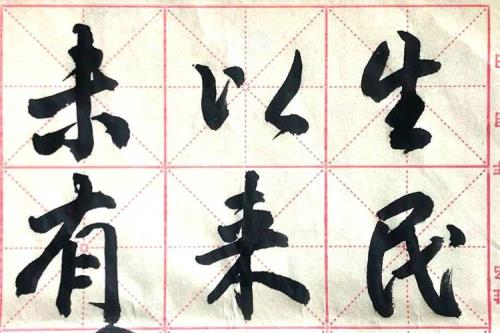 生民
以来
未有